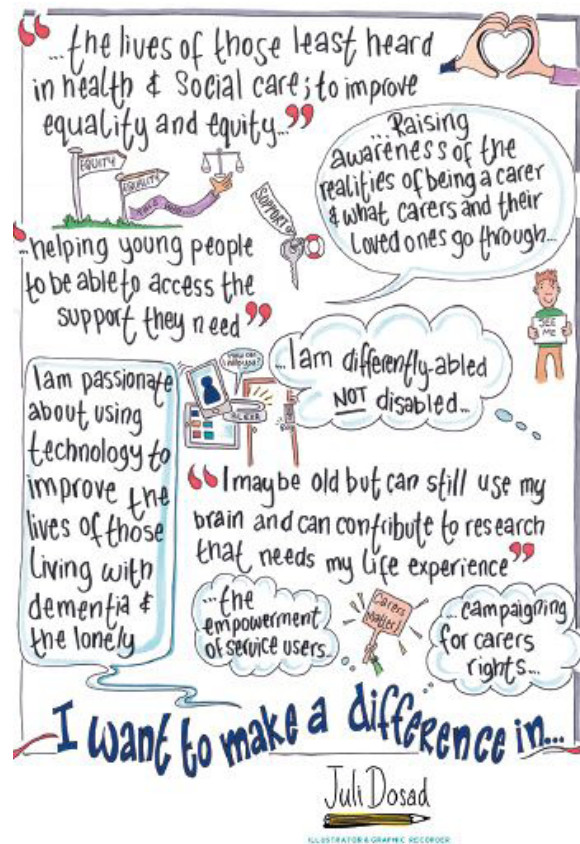 “...the lives of those least heard
in health & Social care; to improve
equality and equity...”
EQUITY
EQUALITY
SUPPORT
...Raising
awareness of the
realities of being a carer
& what carers and their
loved ones go through...
...helping young people
to be able to access the
support they need”
SEE
ME
...I am differently-abled
NOT disabled...
I am passionate
about using
technology to
improve the
lives of those
living with
dementia &
the lonely
“I maybe old but can still use my
brain and can contribute to research
that needs my life experience”
...the
empowerment
of service users...
Carers
Matter!
...campaigning
for carers
rights...
I want to make a difference in...
Juli Dosad
ILLUSTRATOR & GRAPHIC RECORDER